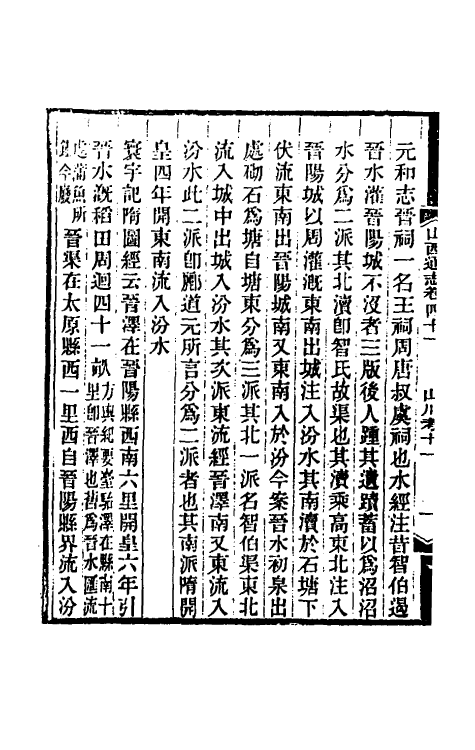 山西通志卷四十一 山川考十一 一
元和志晉祠一名王祠周唐叔虞祠也水經注昔智伯遏
晉水灌晉陽城不沒者三版後人踵其遺蹟蓄以爲沼沼
水分爲二派其北瀆卽智氏故渠也其瀆乘高東北注入
晉陽城以周灌漑東南出城注入汾水其南瀆於石塘下
伏流東南出晉陽城南又東南入於汾今案晉水初泉出
處砌石爲塘自塘東分爲三派其北一派名智伯渠東北
流入城中出城入汾水其次派東流經晉澤南又東流入
汾水此二派卽酈道元所言分爲二派者也其南派隋開
皇四年開東南流入汾水
寰宇記隋圖經云晉澤在晉陽縣西南六里開皇六年引
晉水漑稻田周迴四十一畝方輿紀要臺駘澤在縣南十里卽晉澤也舊爲晉水匯流
處蒲魚所鍾今廢 晉渠在太原縣西一里西自晉陽縣界流入汾